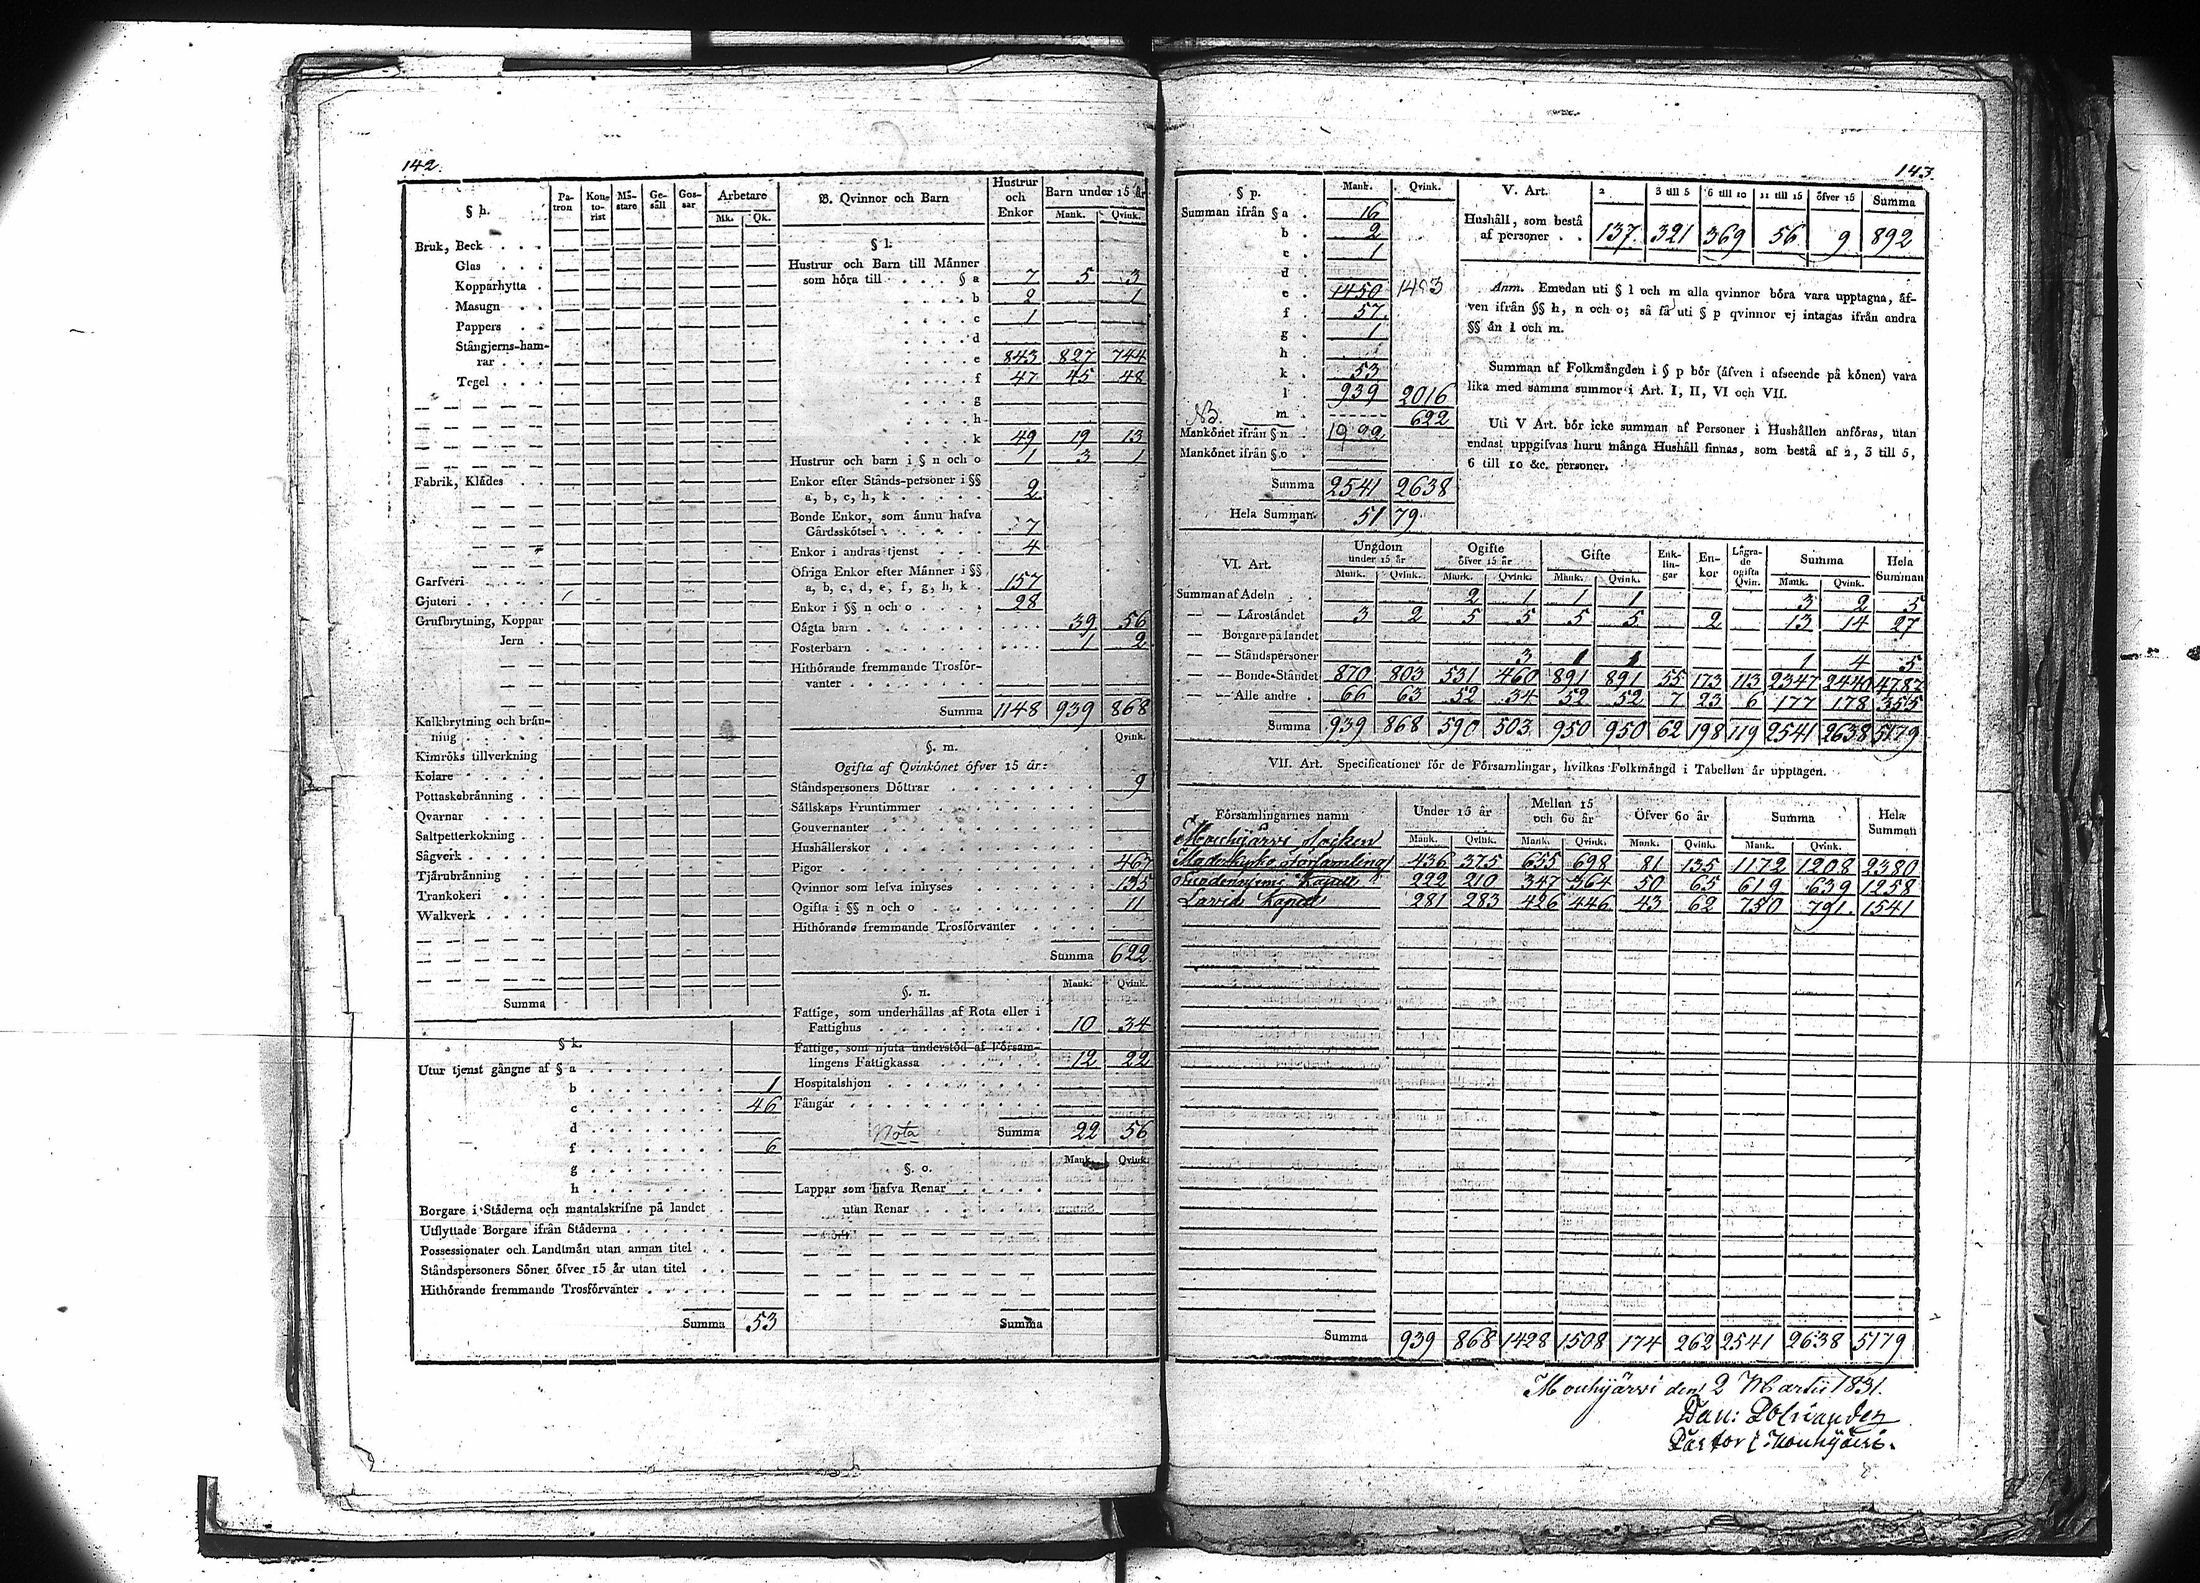 142.
§ h.
Pa-tron Kon-to-rist Mä-stare Ge-säll Gos-sar Arbetare
Mk. Qk.
Bruk, Beck
Glas
Kopparhytta
Masugn
Pappers
Stångjerns-ham-
rar
Tegel
Fabrik, Klädes
Garfveri
Gjuteri
Grufbrytning, Koppar
Jern
Kalkbrytning och brän-
ning
Kimröks tillverkning
Kolare
Pottaskebränning
Qvarnar
Saltpetterkokning
Sågverk
Tjärubränning
Trankokeri
Walkverk
Summa
§ k.
Utur tjenst gångne af § a
b 1
c 46
d
f 6
g
h
Borgare i Städerna och mantalskrifne på landet
Utflyttade Borgare ifrån Städerna
Possessionater och Landtmän utan annan titel
Ståndspersoners Söner öfver 15 år utan titel
Hithörande fremmande Trosförvanter
Summa 53
B. Qvinnor och Barn Hustrur och Enkor Barn under 15 år
Mank. Qvink.
§ l.
Hustrur och Barn till Männer
som höra till § a 7 5 3
b 2 1
c 1
d
e 843 827 744
f 47 45 48
g
h
k 49 19 13
Hustrur och barn i § n och o 1 3 1
Enkor efter Stånds-personer i §§
a, b, c, h, k 2
Bonde Enkor, som ännu hafva
Gårdsskötsel 7
Enkor i andras tjenst 4
Öfriga Enkor efter Männer i §§
a, b, c, d, e, f, g, h, k 157
Enkor i §§ n och o 28
Oägta barn 39 56
Fosterbarn 1 2
Hithörande fremmande Trosför-
vanter
Summa 1148 939 868
§. m. Qvink.
Ogifta af Qvinkönet öfver 15 år:
Ståndspersoners Döttrar 9
Sällskaps Fruntimmer
Gouvernanter
Hushållerskor
Pigor 467
Qvinnor som lefva inhyses 135
Ogifta i §§ n och o 11
Hithörande fremmande Trosförvanter
Summa 622
§. n. Mank. Qvink.
Fattige, som underhållas af Rota eller i
Fattighus 10 34
Fattige, som njuta understöd af Försam-
lingens Fattigkassa 12 22
Hospitalshjon
Fångar
Nota Summa 22 56
§. o. Mank. Qvink.
Lappar som hafva Renar
utan Renar
Summa
143.
§ p. Mank. Qvink.
Summan ifrån § a 16
b 2
c 1
d
e 1450
f 57
g 1
h
k 53
l 939 2016
m 622
NB.
Mankönet ifrån § n
Mankönet ifrån § o
Summa 2541 2638
Hela Summan 5179
V. Art. 2 3 till 5 6 till 10 11 till 15 öfver 15 Summa
Hushåll, som bestå
af personer 137 321 369 56 9 892
Anm. Emedan uti § l och m alla qvinnor böra vara upptagna, äf-
ven ifrån §§ h, n och o; så få uti § p qvinnor ej intagas ifrån andra
§§ än l och m.
Summan af Folkmängden i § p bör (äfven i afseende på könen) vara
lika med samma summor i Art. I, II, VI och VII.
Uti V Art. bör icke summan af Personer i Hushållen anföras, utan
endast uppgifvas huru många Hushåll finnas, som bestå af 2, 3 till 5,
6 till 10 &c. personer.
VI. Art. Ungdom under 15 år Ogifte öfver 15 år Gifte Enk-lin-gar En-kor Lägra-de ogifta Qvin. Summa Hela Summan
Mank. Qvink. Mank. Qvink. Mank. Qvink. Mank. Qvink.
Summan af Adeln 2 1 1 1 3 2 5
— — Läroståndet 3 2 5 5 5 5 2 13 14 27
— Borgare på landet
— — Ståndspersoner 3 1 1 1 4 5
— — Bonde-Ståndet 870 803 531 460 891 891 55 173 113 2347 2440 4787
— — Alle andre 66 63 52 34 52 52 7 23 6 177 178 355
Summa 939 868 590 503 950 950 62 198 119 2541 2638 5179
VII. Art. Specificationer för de Församlingar, hvilkas Folkmängd i Tabellen är upptagen.
Församlingarnes namn Under 15 år Mellan 15 och 60 år Öfver 60 år Summa Hela Summan
Mank. Qvink. Mank. Qvink. Mank. Qvink. Mank. Qvink.
Mouhijärvi Socken
Moderkyrko Församling 436 375 655 698 81 135 1172 1208 2380
Suodenniemi Kapell 222 210 347 364 50 65 619 639 1258
Lavia Kapell 281 283 426 446 43 62 750 791 1541
Summa 939 868 1428 1508 174 262 2541 2638 5179
Mouhijärvi den 2 Martii 1831.
Dan:
Pastor i Mouhijärvi.